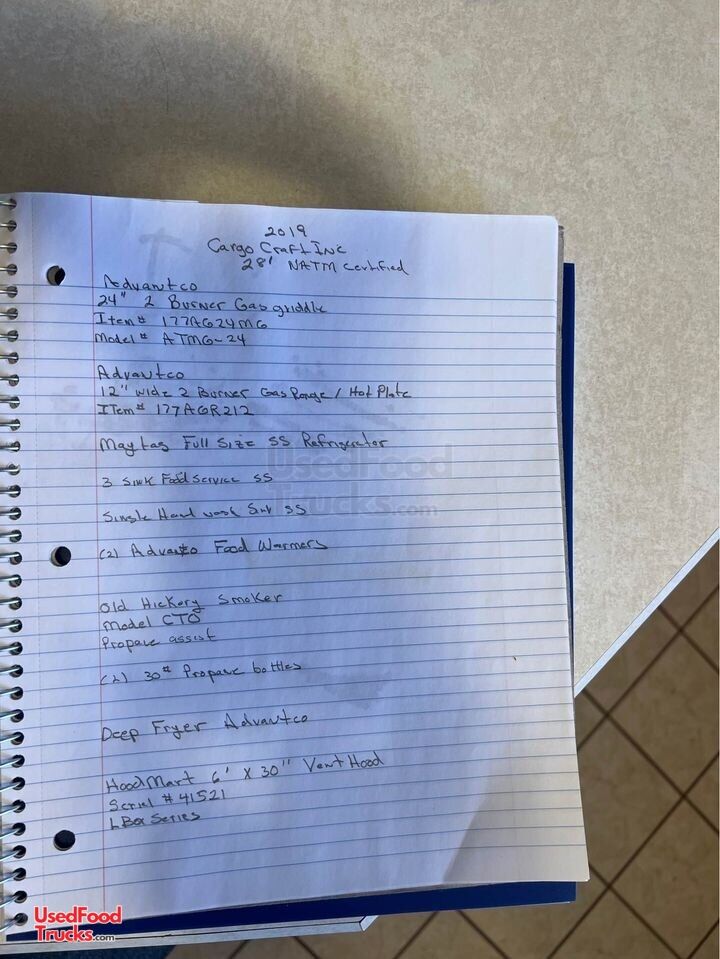 2019
Cargo Craft Inc
28' NATM Certified
Advantco
24" 2 Burner Gas griddle
Item# 177AG24MG
Model# ATMG-24
Advantco
12" wide 2 Burner Gas Range / Hot Plate
ITem# 177AGR212
Maytag Full Size SS Refrigerator
3 Sink Food Service SS
Single Hand wash Sink SS
(2) Advantco Food Warmers
Old Hickory Smoker
Model CTO
Propane assist
(2) 30# Propane bottles
Deep Fryer Advantco
HoodMart 6' X 30" Vent Hood
Serial #41521
LBOX Series
UsedFood
Trucks.com
UsedFood
Trucks.com